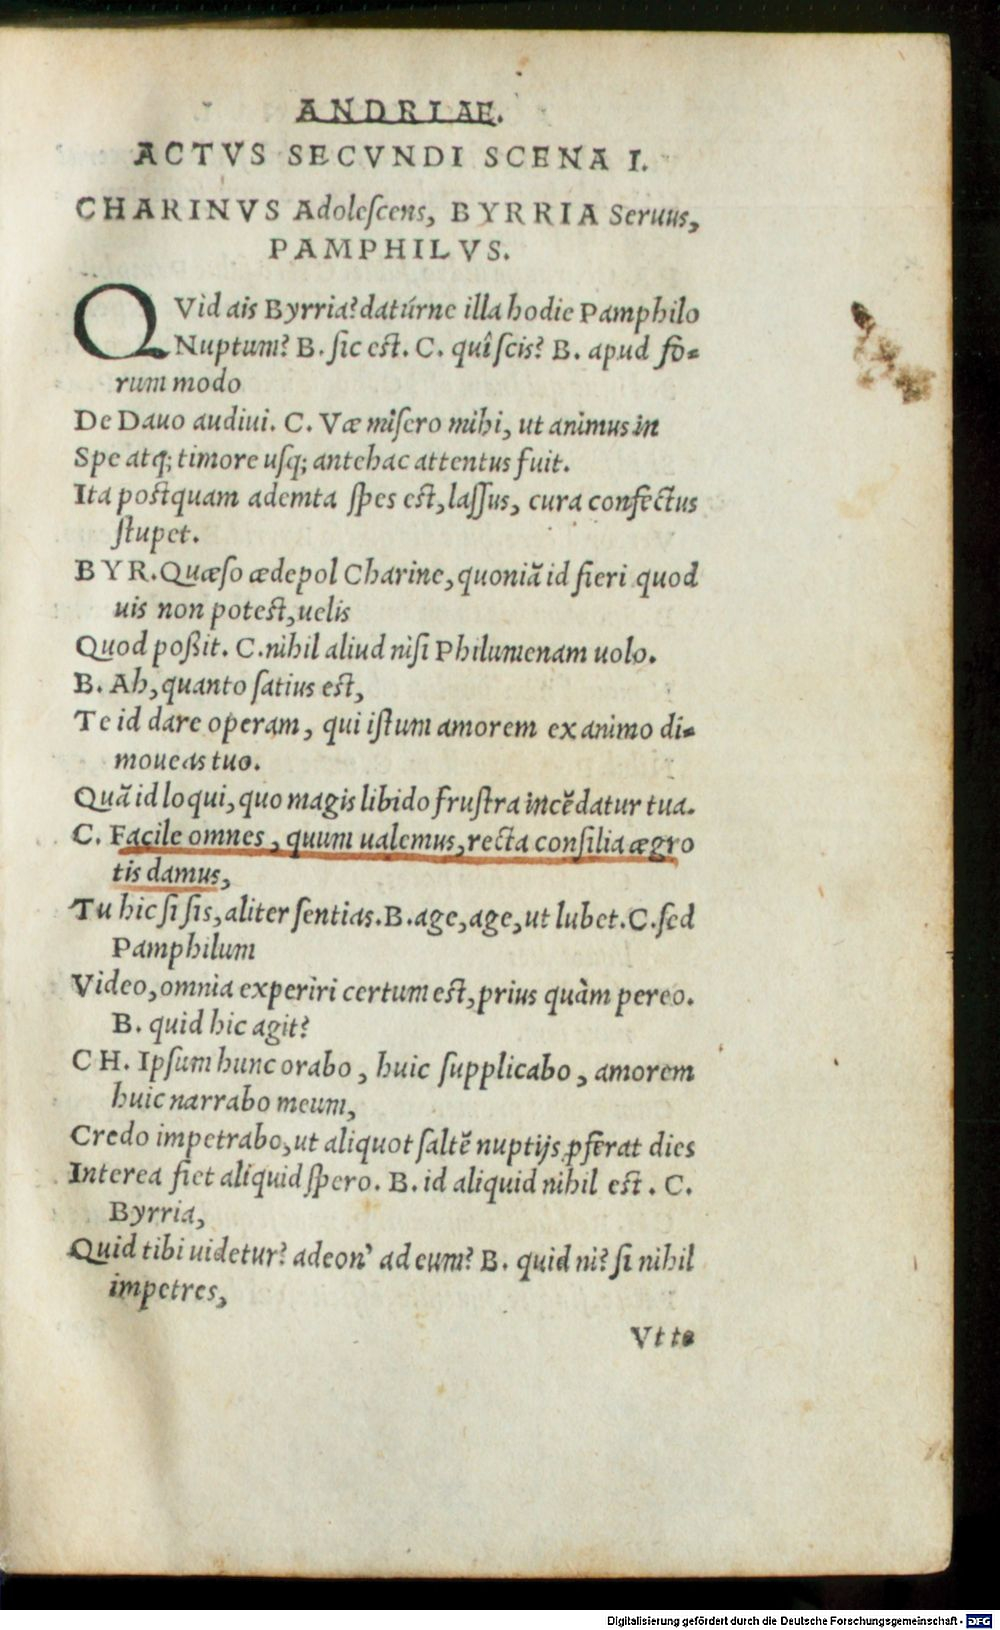 ANDRIAE.
ACTVS SECVNDI SCENA I.
CHARINVS Adolescens, BYRRIA Seruus,
PAMPHILVS.
QVid ais Byrria? datúrne illa hodie Pamphilo
Nuptum? B. sic est. C. quî scis? B. apud fo-
rum modo
De Dauo audiui. C. Væ misero mihi, ut animus in
Spe atq; timore usq; antehac attentus fuit.
Ita postquam ademta spes est, lassus, cura confectus
stupet.
BYR. Quæso ædepol Charine, quoniã id fieri quod
uis non potest, uelis
Quod poßit. C. nihil aliud nisi Philumenam uolo.
B. Ah, quanto satius est,
Te id dare operam, qui istum amorem ex animo di-
moueas tuo.
Quã id loqui, quo magis libido frustra incẽdatur tua.
C. Facile omnes, quum ualemus, recta consilia ægro
tis damus,
Tu hic si sis, aliter sentias. B. age, age, ut lubet. C. sed
Pamphilum
Video, omnia experiri certum est, prius quàm pereo.
B. quid hic agit?
CH. Ipsum hunc orabo, huic supplicabo, amorem
huic narrabo meum,
Credo impetrabo, ut aliquot saltẽ nuptijs ꝓferat dies
Interea fiet aliquid spero. B. id aliquid nihil est. C.
Byrria,
Quid tibi uidetur? adeon' ad eum? B. quid ni? si nihil
impetres,
Vt te
Digitalisierung gefördert durch die Deutsche Forschungsgemeinschaft - DFG